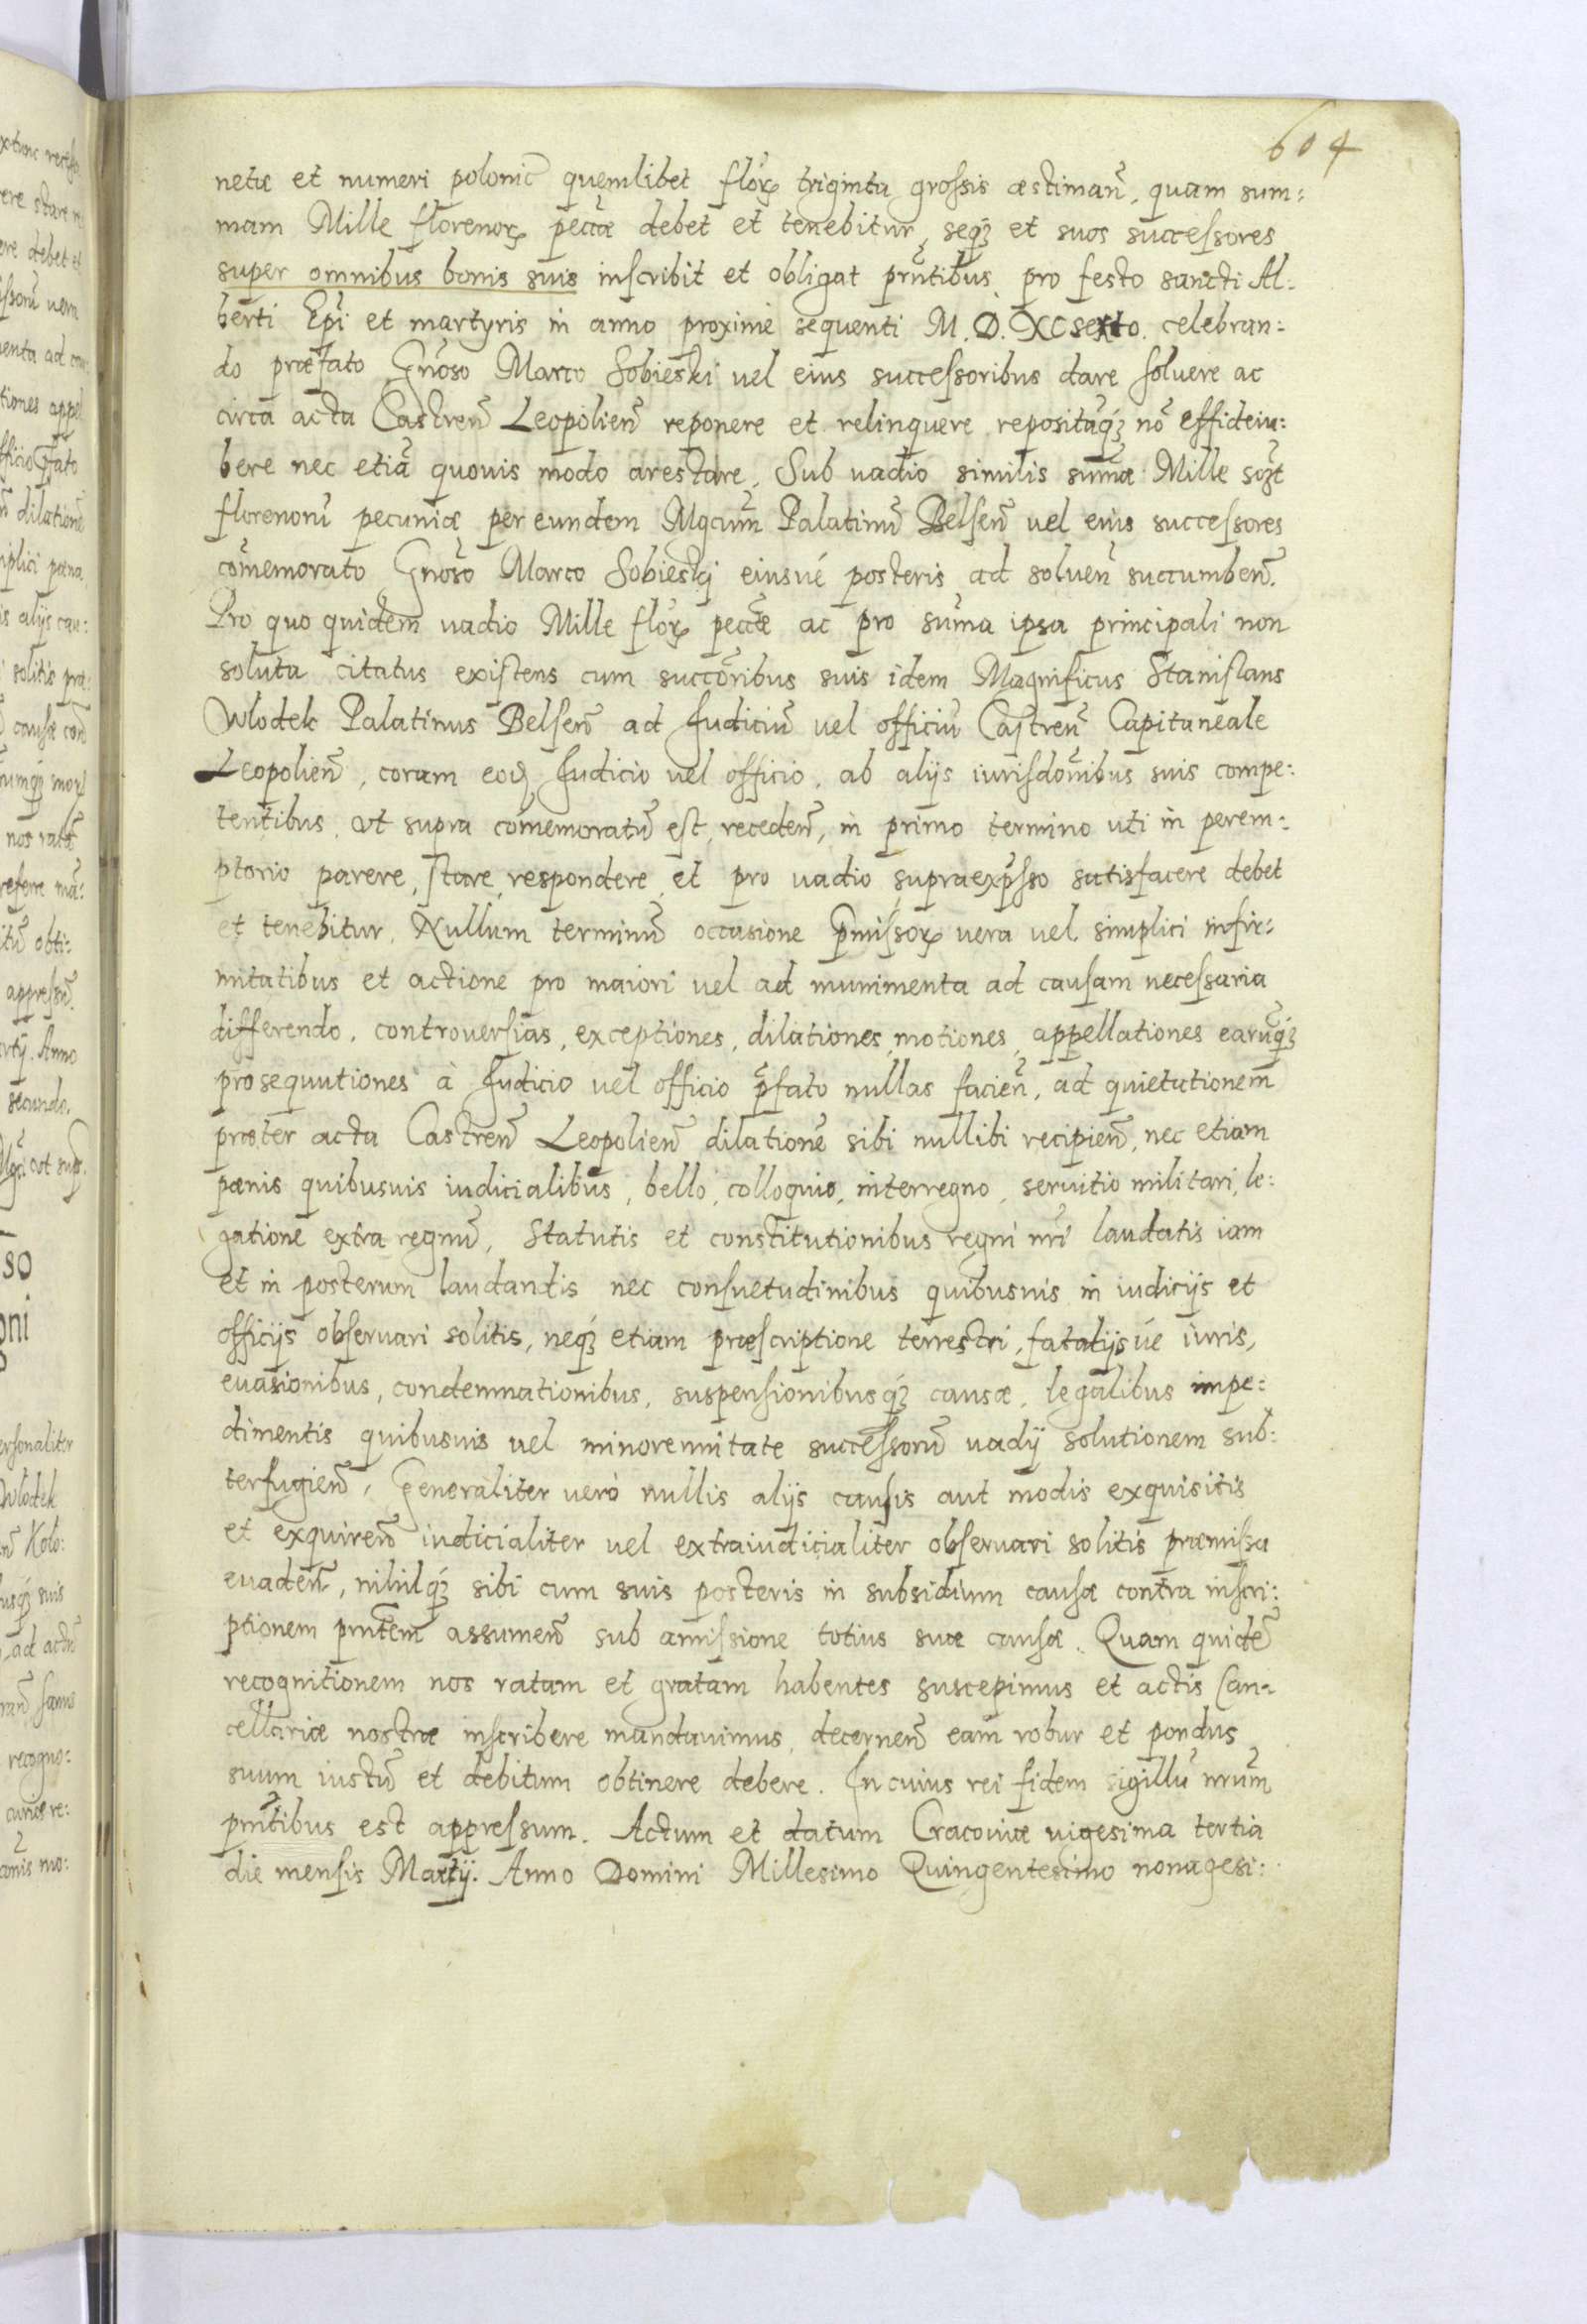 604
netæ et numeri polonic̃ quemlibet floꝝ triginta grossis æstimañ, quam sum:
mam Mille florenoꝝ pecc̃æ debet et tenebitur, seqꝫ et suos successores
super omnibus bonis suis inscribit et obligat pr̃ntibus, pro festo sancti Al:
berti Epĩ et martyris in anno proxime sequenti M.D.XCsexto. celebran:
do præfato Gñoso Marco Sobieski vel eius successoribus dare soluere ac
circa acta Castreñ Leopolieñ reponere et relinquere repositãqꝫ nõ effideiu:
bere nec etiã quouis modo arestare, Sub vadio similis sum̃æ Mille
florenorũ pecuniæ per eundem Mgcũm Palatinũ Belseñ vel eius successores
com̃emorato Gñoso Marco Sobieski eiusvé posteris ad solueñ succumbeñ.
Pro quo quidem vadio Mille floꝝ pecc̃æ ac pro sum̃a ipsa principali non
soluta citatus existens cum succõribus suis idem Magnificus Stanislaus
Wlodek Palatinus Belseñ ad Judiciũ vel officiũ Castreñ Capitaneale
Leopolieñ, coram eoꝺ Judicio vel officio, ab alijs iurisdõnibus suis compe:
tentibus, vt supra com̃emoratũ est, recedeñ, in primo termino vti in perem:
ptorio parere, stare, respondere, et pro vadio supraexp̃sso satisfacere debet
et tenebitur, Nullum terminũ occasione p̃missoꝝ vera vel simplici infir:
mitatibus et actione pro maiori vel ad munimenta ad causam necessaria
differendo, controuersias, exceptiones, dilationes, motiones, appellationes earũqꝫ
prosequutiones à Judicio vel officio p̃fato nullas facieñ, ad quietationem
præter acta Castreñ Leopolieñ dilationẽ sibi nullibi recipieñ, nec etiam
pænis quibusuis iudicialibus, bello, colloquio, interregno, seruitio militari, le:
gatione extra regnũ, Statutis et constitutionibus regni nr̃i laudatis iam
et in posterum laudandis nec consuetudinibus quibusuis in iudicijs et
officijs obseruari solitis, neqꝫ etiam præscriptione terrestri, fatalijs vé iuris,
euasionibus, condemnationibus, suspensionibusqꝫ causæ, legalibus impe:
dimentis quibusuis vel minorennitate successorũ vadij solutionem sub:
terfugieñ, Generaliter verò nullis alijs causis aut modis exquisitis
et exquireñ iudicialiter vel extraiudicialiter obseruari solitis præmissa
euadeñ, nihilqꝫ sibi cum suis posteris in subsidium causæ contra inscri:
ptionem pr̃ntem assumeñ sub amissione totius suæ causæ. Quam quidẽ
recognitionem nos ratam et gratam habentes suscepimus et actis Can:
cellariæ nostræ inscribere mandauimus, decerneñ eam robur et pondus
suum iustũ et debitum obtinere debere. In cuius rei fidem sigillũ nr̃um
pr̃ntibus est appressum. Actum et datum Cracouiæ vigesima tertia
die mensis Martij. Anno Domini Millesimo Quingentesimo nonagesi: